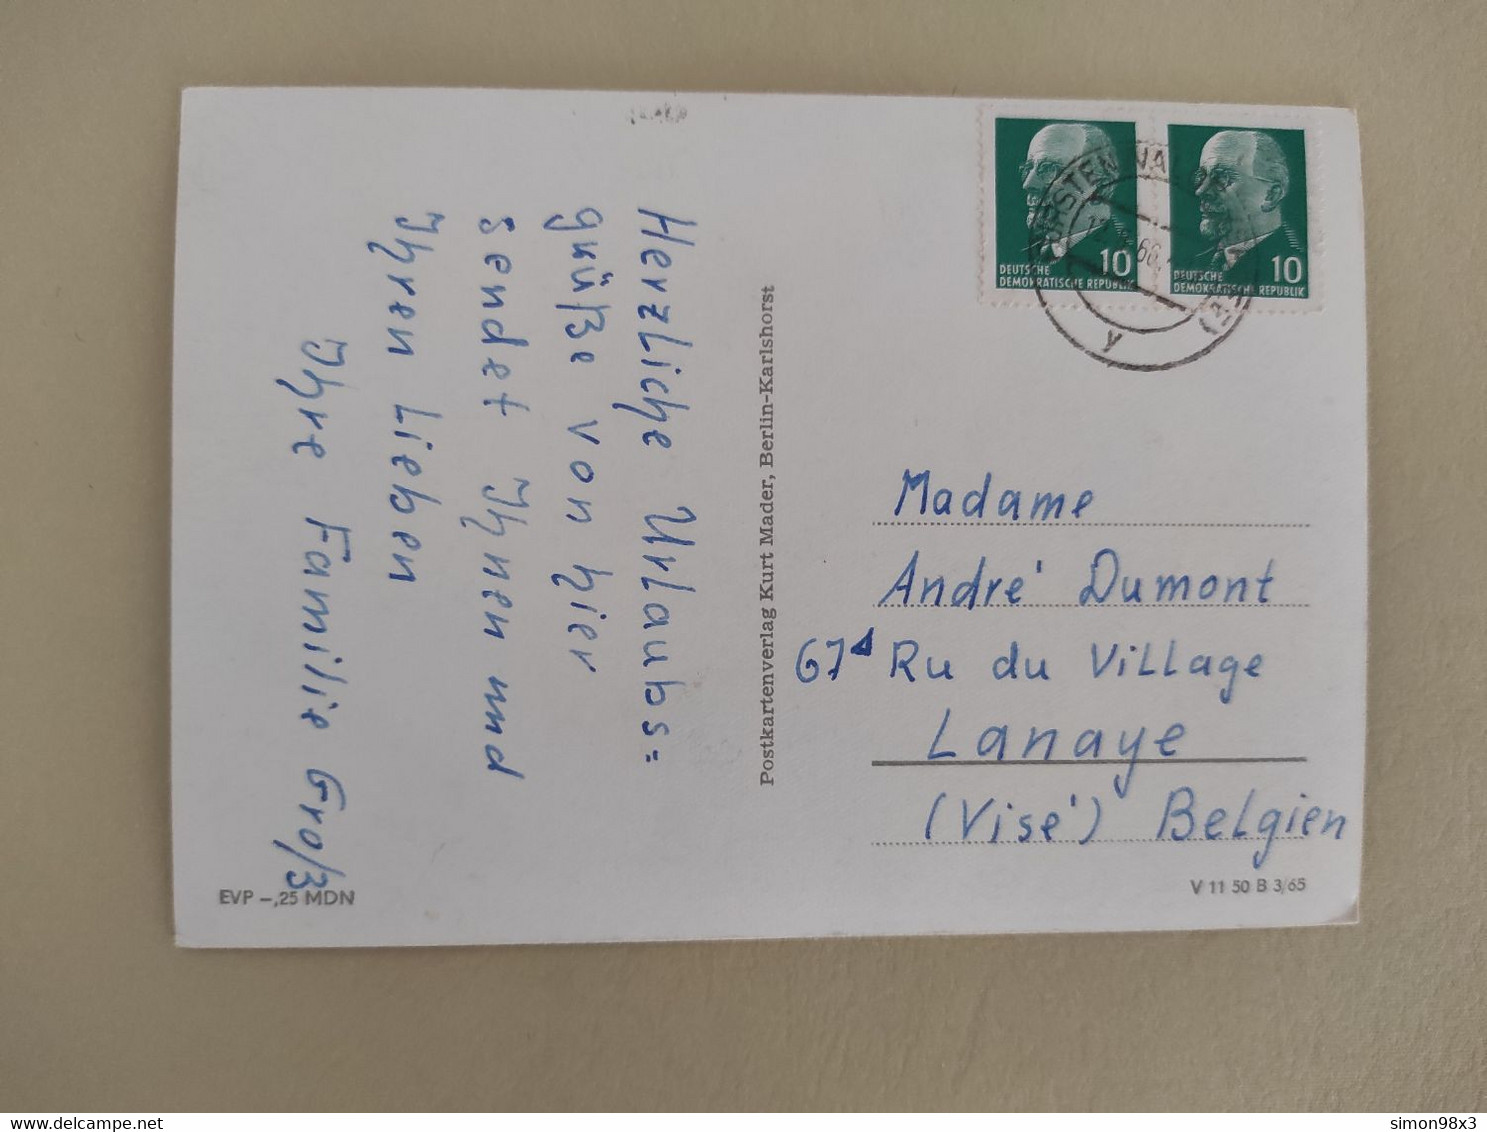 Herzliche Urlaubs=
grüße von hier
sendet Ihnen und
Ihren Lieben
Ihre Familie Groß
EVP –,25 MDN
Postkartenverlag Kurt Mader, Berlin-Karlshorst
10
DEUTSCHE
DEMOKRATISCHE REPUBLIK
10
DEUTSCHE
DEMOKRATISCHE REPUBLIK
66
y
Madame
André Dumont
67 Ru du Village
Lanaye
(Visé) Belgien
V 11 50 B 3/65
delcampe.net
simon98x3